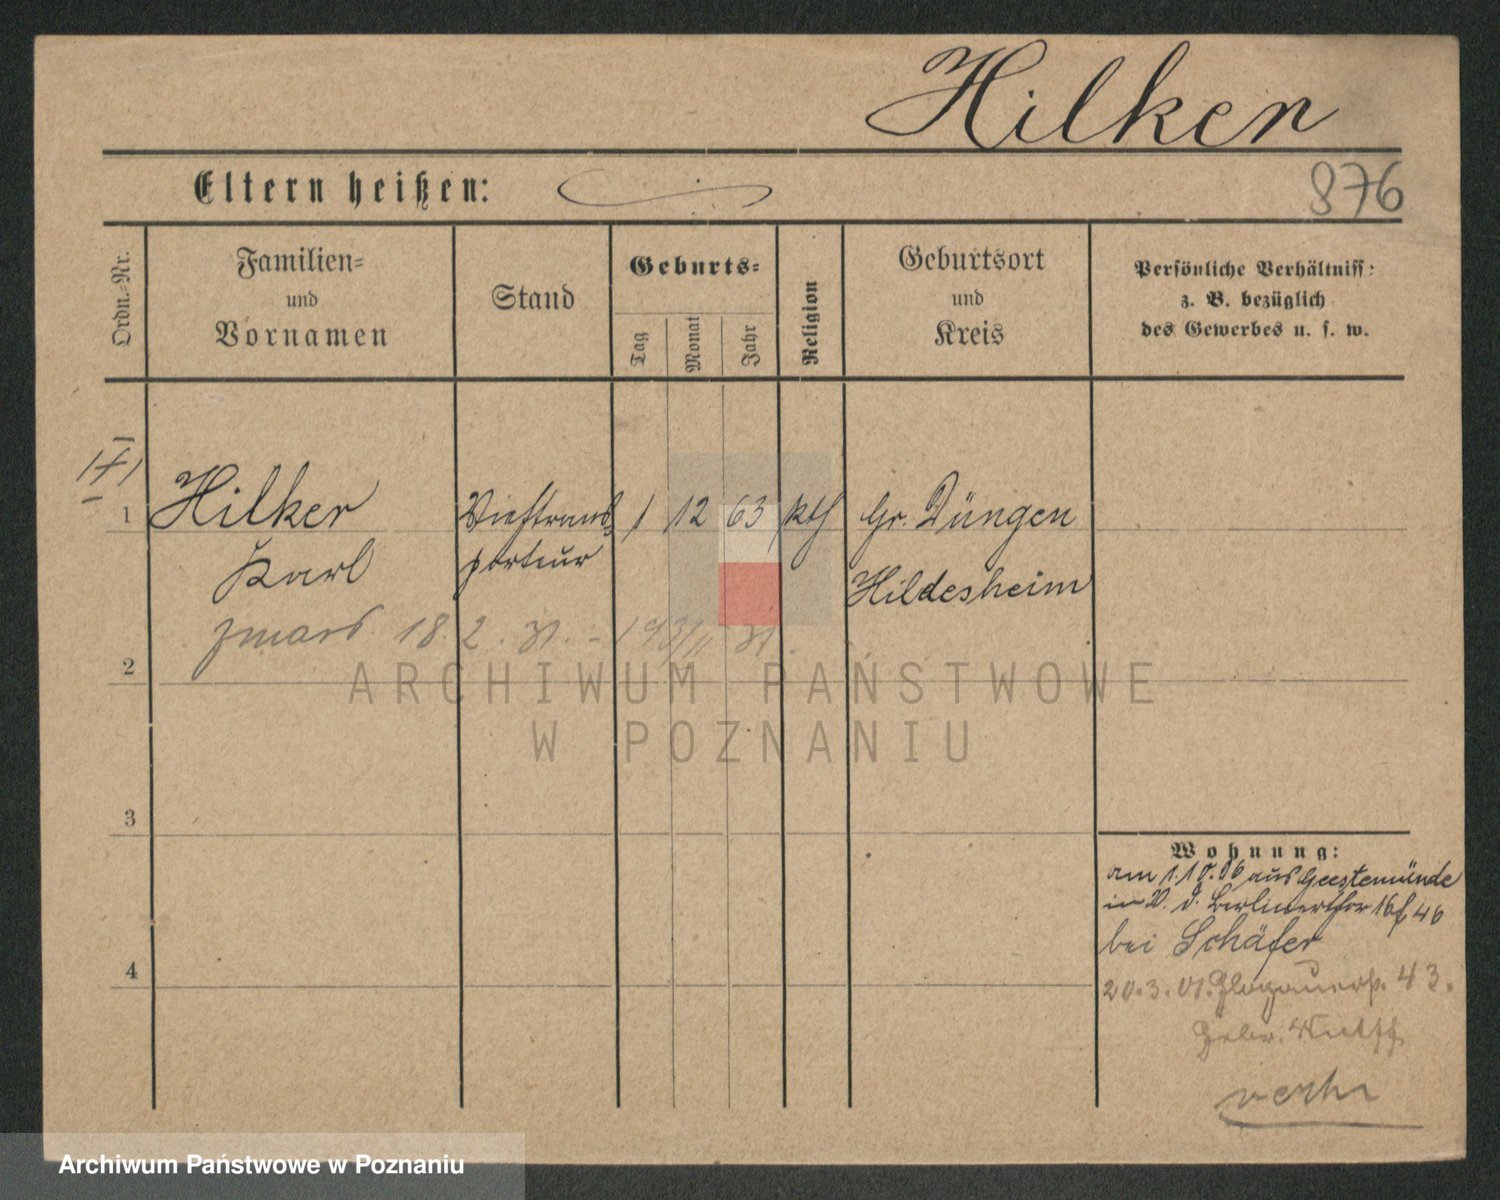 Hilker
Eltern heißen:
876
Ordn.-Nr.
Familien-
und
Vornamen
Stand
Geburts-
Tag
Monat
Jahr
Religion
Geburtsort
und
Kreis
Persönliche Verhältniss:
z. B. bezüglich
des Gewerbes u. s. w.
1 Hilker Viehtrans- 1 12 63 kth Gr. Düngen
Karl porteur Hildesheim
zmarł 18. 2. 31.
2
3
4
Wohnung:
am 1.10.06 aus Geestemünde
Berlinerthor 16
bei Schäfer
20.3. Glogauerstr. 43.
Gebr.
verh
ARCHIWUM PAŃSTWOWE
W POZNANIU
Archiwum Państwowe w Poznaniu